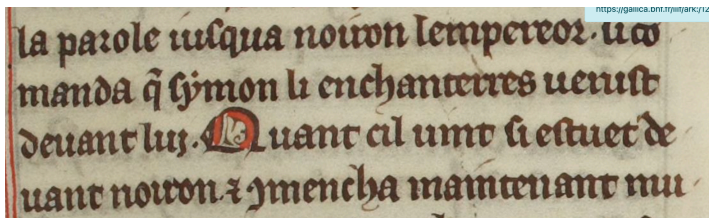 https://gallica.bnf.fr/iiif/ark:/12
la parole iusqua noiron lempereor. li co
manda q̃ symon li enchanterres uenist
deuant lui. Quant cil uint si estuet de
uant noiron ⁊ ꝯmencha maintenant mu